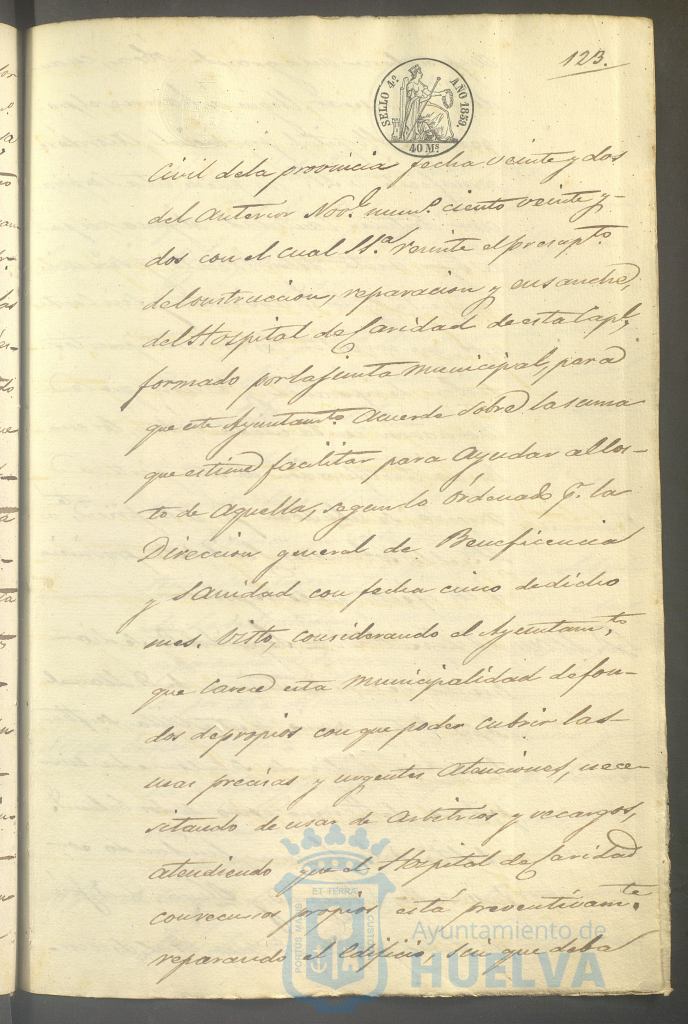 123.
SELLO 4º AÑO 1859.
40 Mˢ
Civil dela provincia fecha veinte y dos
del anterior Nov.ᵉ num.º ciento veinte y
dos con el cual S.S.ª remite el presupᵗᵒ.
de Construccion, reparacion y ensanche
del Hospital de Caridad de esta Capˡ,
formado por la junta municipal, para
que este Ayuntamᵗᵒ. acuerde sobre la suma
que estime facilitar para ayudar al Cos-
to de Aquella, segun lo Ordenado p.ʳ la
Direccion general de Beneficencia
y Sanidad con fecha cinco de dicho
mes. Visto, considerando el Ayuntam.ᵗᵒ
que Carece esta municipalidad de fon-
dos de propios con que poder cubrir las
mas precisas y urgentes atenciones, nece-
sitando de usar de arbitrios y recargos,
atendiendo que el Hospital de Caridad
con recursos propios está preventivamᵗᵉ.
reparando el Edificio, sin que deba
PORTUS MARIS ET TERRAE CUSTODIA
Ayuntamiento de
HUELVA